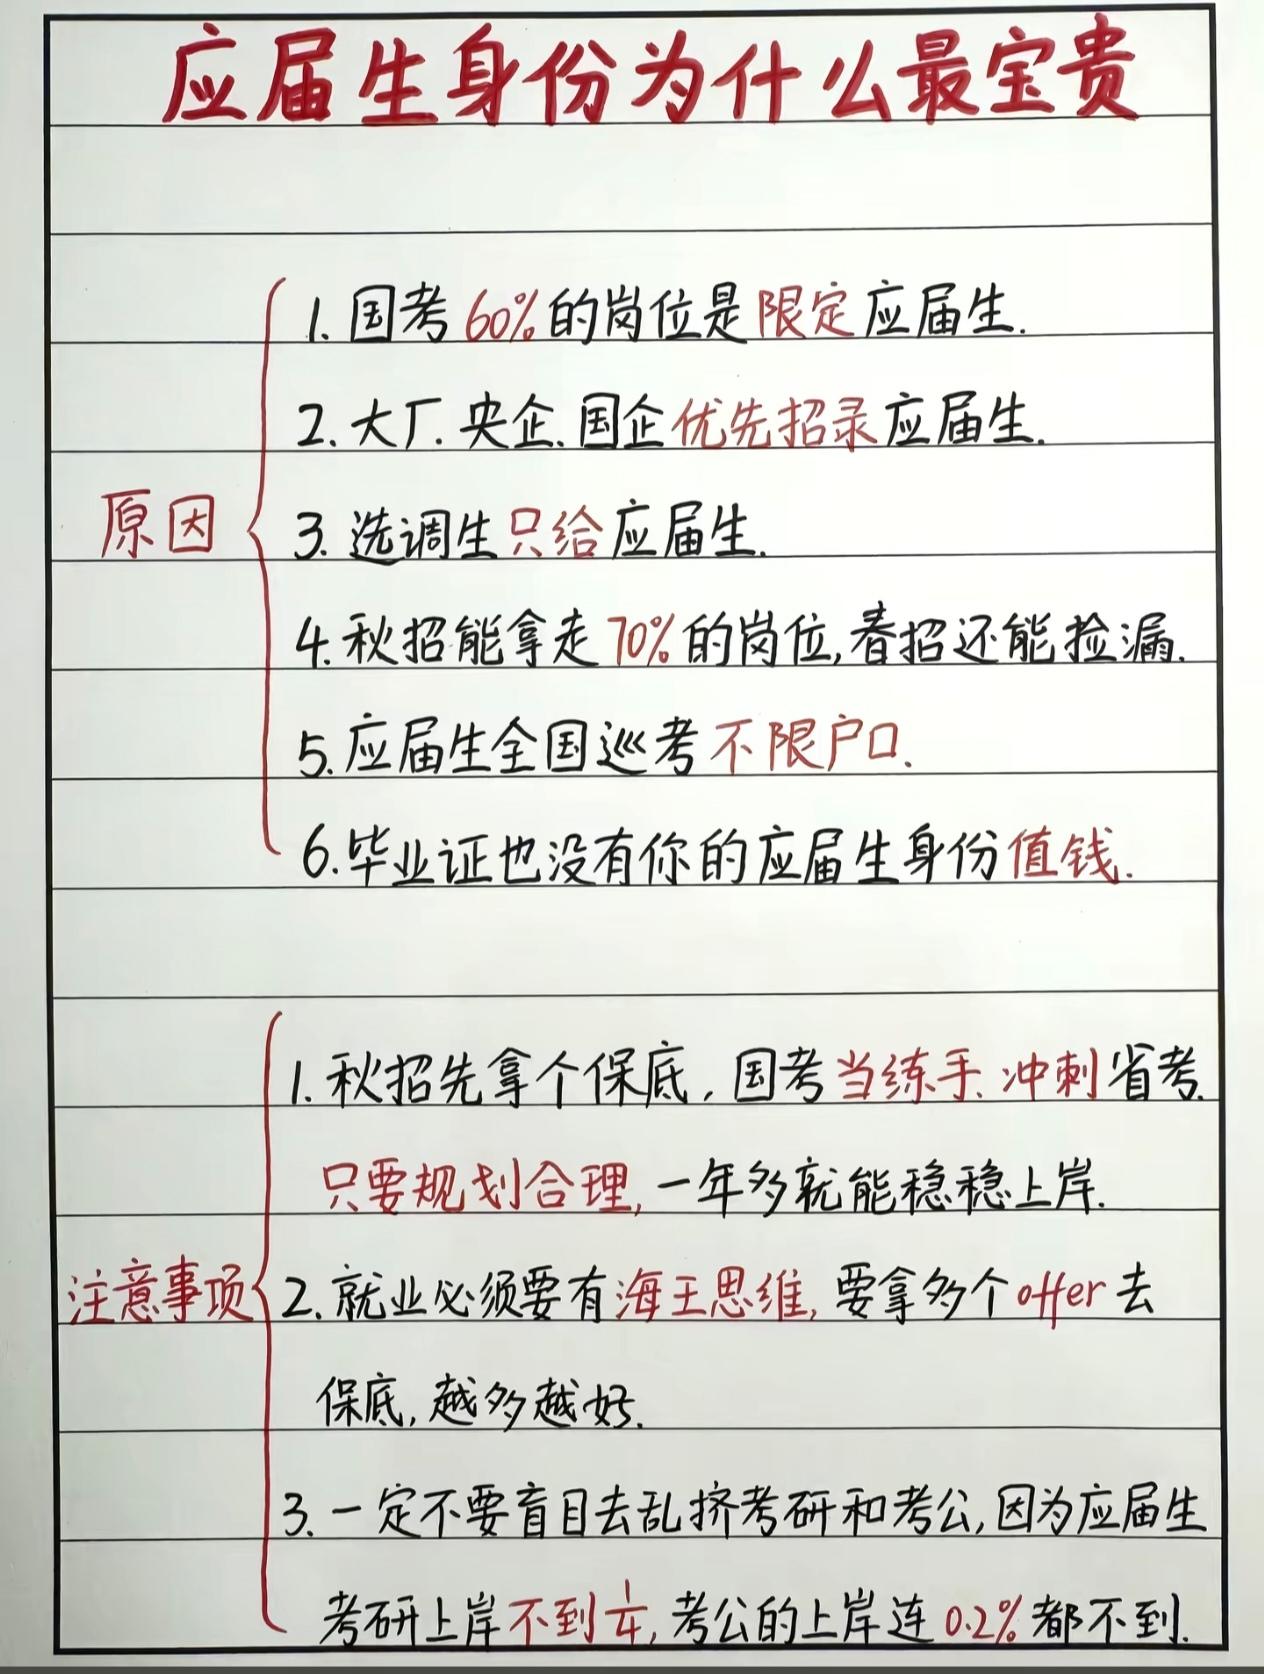 应届生身份为什么最宝贵
1. 国考60%的岗位是限定应届生.
2. 大厂.央企.国企优先招录应届生.
原因
3. 选调生只给应届生.
4. 秋招能拿走70%的岗位,春招还能捡漏.
5. 应届生全国巡考不限户口.
6. 毕业证也没有你的应届生身份值钱.
1. 秋招先拿个保底,国考当练手.冲刺省考.
只要规划合理,一年多就能稳稳上岸.
注意事项
2. 就业必须要有海王思维,要拿多个offer去
保底,越多越好.
3. 一定不要盲目去乱挤考研和考公,因为应届生
考研上岸不到1/4,考公的上岸连0.2%都不到.